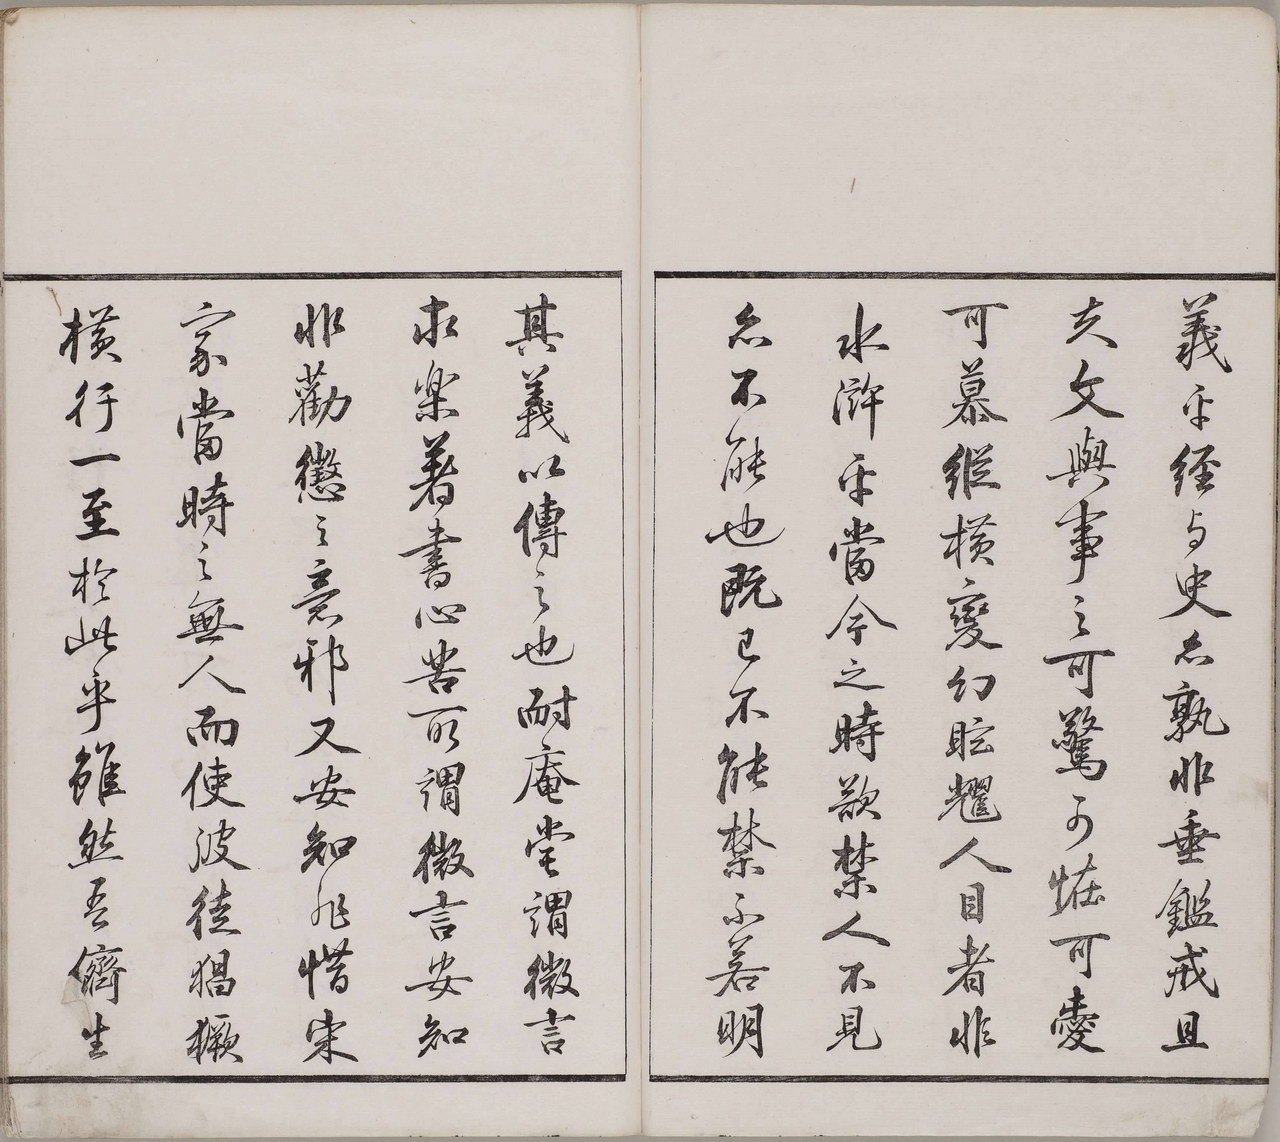 義乎経与史亦孰非垂鑑戒且
夫文與事之可驚可怪可愛
可慕縦横變幻眩耀人目者非
水滸乎當今之時欲禁人不見
亦不能也既已不能禁不若明
其義以傳之也耐庵嘗謂微言
求楽著書心苦所謂微言安知
非勸懲之意邪又安知非惜宋
家當時之無人而使波徒猖獗
横行一至於此乎雖然吾儕生